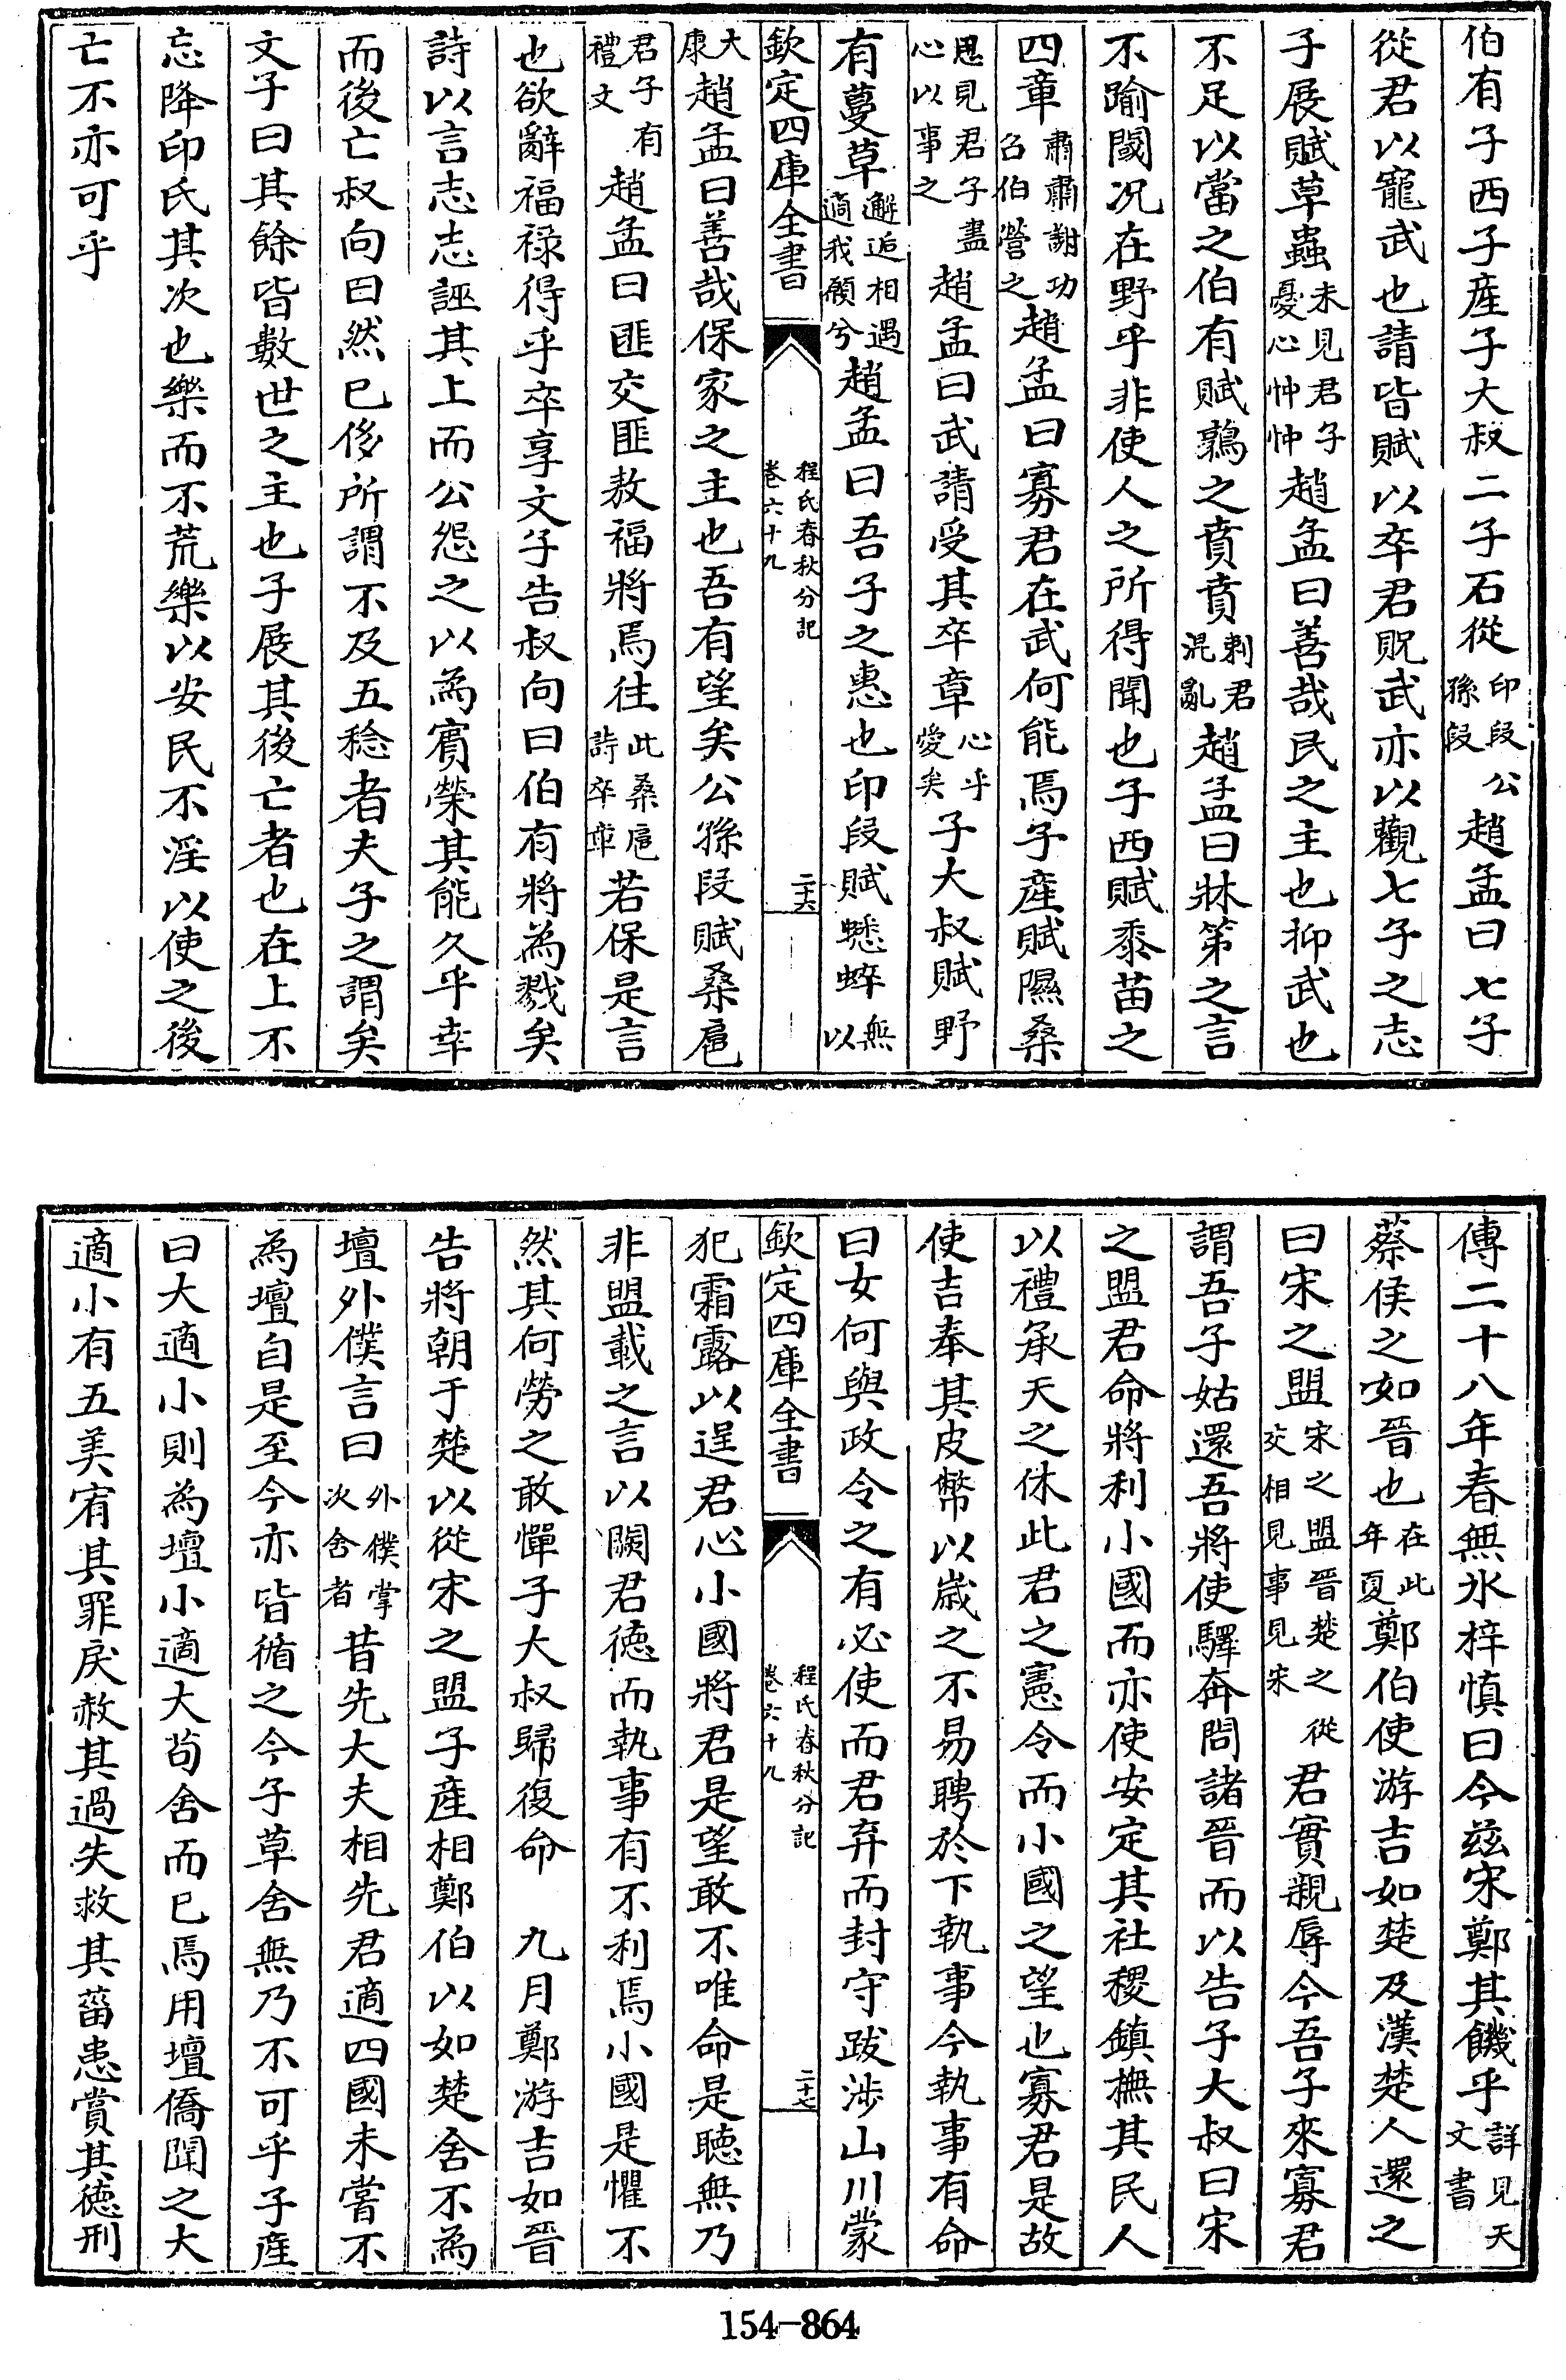 伯有子西子産子大叔二子石從印段公孫段趙孟曰七子
從君以寵武也請皆賦以卒君貺武亦以觀七子之志
子展賦草蟲未見君子憂心忡忡趙孟曰善哉民之主也抑武也
不足以當之伯有賦鶉之賁賁刺君混亂趙孟曰牀笫之言
不踰閾况在野乎非使人之所得聞也子西賦黍苗之
四章肅肅謝功召伯營之趙孟曰寡君在武何能焉子産賦隰桑
思見君子盡心以事之趙孟曰武請受其卒章心乎愛矣子大叔賦野
有蔓草邂逅相遇適我願兮趙孟曰吾子之惠也印段賦蟋蟀無以
欽定四庫全書 程氏春秋分記 卷六十九 二十六
大康趙孟曰善哉保家之主也吾有望矣公孫段賦桑扈
君子有禮文趙孟曰匪交匪敖福將焉往此桑扈詩卒章若保是言
也欲辭福祿得乎卒享文子告叔向曰伯有將為戮矣
詩以言志志誣其上而公怨之以為賓榮其能久乎幸
而後亡叔向曰然已侈所謂不及五稔者夫子之謂矣
文子曰其餘皆數世之主也子展其後亡者也在上不
忘降印氏其次也樂而不荒樂以安民不淫以使之後
亡不亦可乎
傳二十八年春無氷梓慎曰今兹宋鄭其饑乎詳見天文書
蔡侯之如晉也在此年夏鄭伯使游吉如楚及漢楚人還之
曰宋之盟宋之盟晉楚之從交相見事見宋君實親辱今吾子來寡君
謂吾子姑還吾將使驛奔問諸晉而以告子大叔曰宋
之盟君命將利小國而亦使安定其社稷鎮撫其民人
以禮承天之休此君之憲令而小國之望也寡君是故
使吉奉其皮幣以歲之不易聘於下執事今執事有命
曰女何與政令之有必使而君弃而封守跋涉山川蒙
欽定四庫全書 程氏春秋分記 卷六十九 二十七
犯霜露以逞君心小國將君是望敢不唯命是聽無乃
非盟載之言以闕君德而執事有不利焉小國是懼不
然其何勞之敢憚子大叔歸復命 九月鄭游吉如晉
告將朝于楚以從宋之盟子産相鄭伯以如楚舍不為
壇外僕言曰外僕掌次舍者昔先大夫相先君適四國未嘗不
為壇自是至今亦皆循之今子草舍無乃不可乎子産
曰大適小則為壇小適大苟舍而已焉用壇僑聞之大
適小有五美宥其罪戾赦其過失救其菑患賞其德刑
154-864